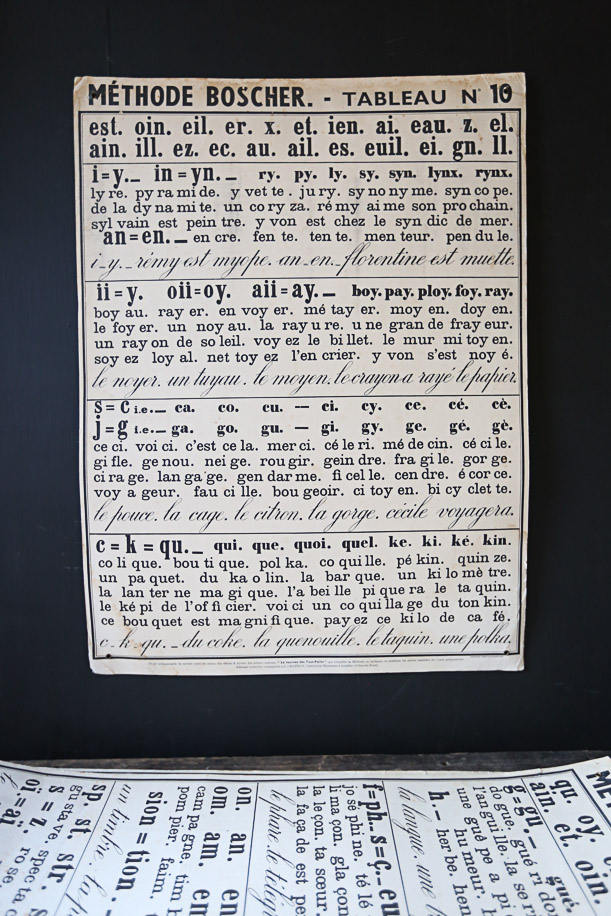 MÉTHODE BOSCHER. - TABLEAU N° 10
est. oin. eil. er. x. et. ien. ai. eau. z. el.
ain. ill. ez. ec. au. ail. es. euil. ei. gn. ll.
i=y._ in=yn._ ry. py. ly. sy. syn. lynx. rynx.
ly re. py ra mi de. y vet te. ju ry. sy no ny me. syn co pe.
de la dy na mi te. un co ry za. ré my ai me son pro chain.
syl vain est pein tre. y von est chez le syn dic de mer.
an=en._ en cre. fen te. ten te. men teur. pen du le.
i_y._ rémy est myope. an_en._ florentine est muette.
ii=y. oii=oy. aii=ay._ boy. pay. ploy. foy. ray.
boy au. ray er. en voy er. mé tay er. moy en. doy en.
le foy er. un noy au. la ray u re. u ne gran de fray eur.
un ray on de so leil. voy ez le bi llet. le mur mi toy en.
soy ez loy al. net toy ez l'en crier. y von s'est noy é.
le noyer. un tuyau. le moyen. le crayon a rayé le papier.
s=c i.e._ ca. co. cu. — ci. cy. ce. cé. cè.
j=g i.e._ ga. go. gu. — gi. gy. ge. gé. gè.
ce ci. voi ci. c'est ce la. mer ci. cé le ri. mé de cin. cé ci le.
gi fle. ge nou. nei ge. rou gir. gein dre. fra gi le. gor ge.
ci ra ge. lan ga ge. gen dar me. fi cel le. cen dre. é cor ce.
voy a geur. fau ci lle. bou geoir. ci toy en. bi cy clet te.
le pouce. la cage. le citron. la gorge. cécile voyagera.
c=k=qu._ qui. que. quoi. quel. ke. ki. ké. kin.
co li que. bou ti que. pol ka. co qui lle. pé kin. quin ze.
un pa quet. du ka o lin. la bar que. un ki lo mè tre.
la lan ter ne ma gi que. l'a bei lle pi que ra le ta quin.
le ké pi de l'of fi cier. voi ci un co qui lla ge du ton kin.
ce bou quet est ma gni fi que. pay ez ce ki lo de ca fé.
c_k_qu._ du coke. la quenouille. le taquin. une polka.
qu. oy.
ain. et. oin.
g=gu._ gué.
do gue. gué ri do
l'an gui lle. la se
une guê pe a pi
h.- her be. hen
hu meur.
la langue. une
f=ph._ s=ç._ eu
jo sé phi ne. té lé
li ma çon. gla çon
la le çon. ta sœur.
la fa ça de est pe
le phare. le télég
on. an. en
om. am. em
cam pa gne. tim
pom pier. faim.
sion = tion._
un timbre. la
sp. st. str.
gus ta ve. spec ta
s = z.
oï=aï
ro se.